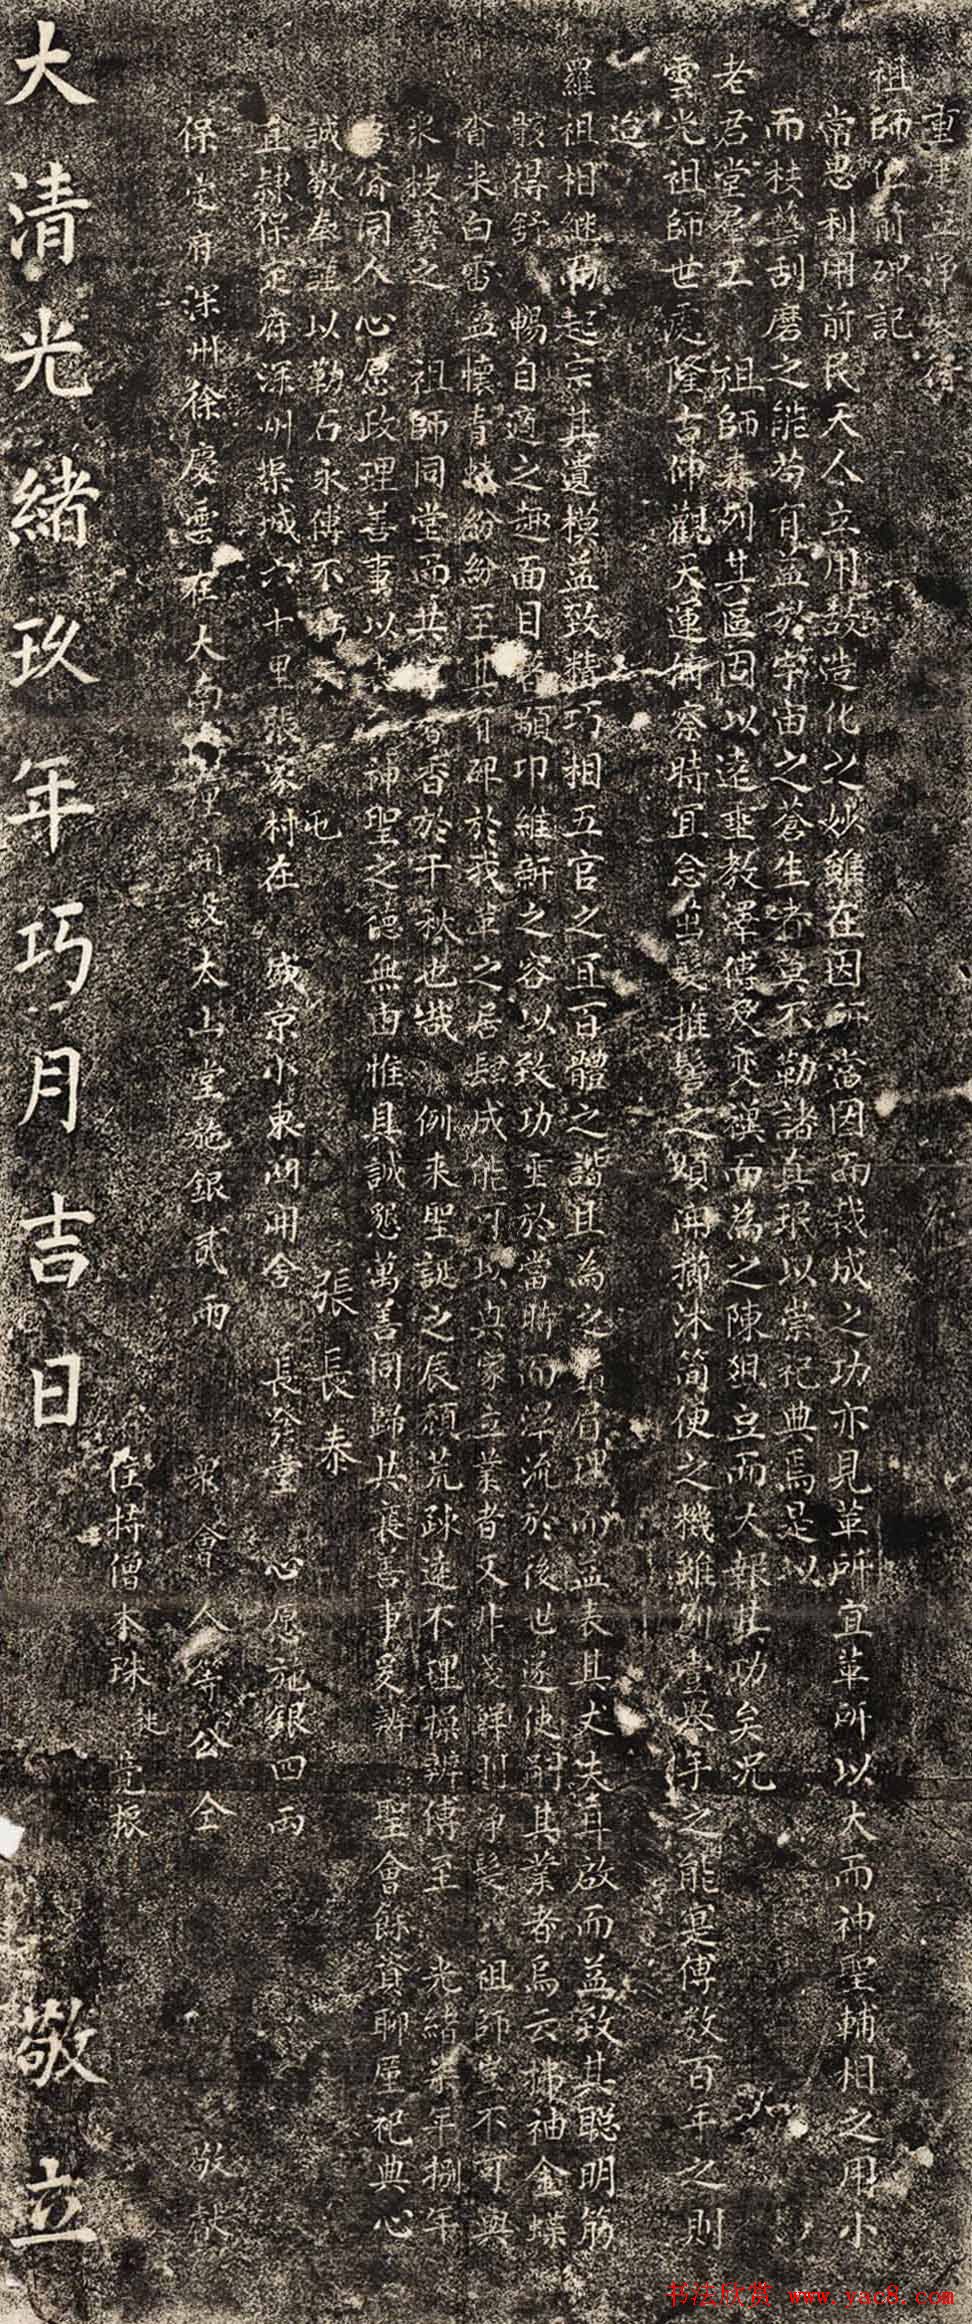 重建立淨
祖師 前碑記
常思利用前民天人立用發造化之妙雖在因所當因而裁成之功亦見革所宜革所以大而神聖輔相之用小
而技藝刮磨之能苟有益於宇宙之蒼生者莫不勒諸真珉以崇祀典焉是以
老君堂 工 祖師森列其區因以遠垂教澤傳 變 而為之陳俎豆而大報其功矣况
雲光祖師世 隆古仰觀天運俯察時宜念 髮推髻之煩開櫛沐簡便之機雖別 手之能寔傳数百年之則
迨
羅祖相繼而起宗其遺模益致精巧相五官之宜百體之諧且為之 眉理 而益表其丈夫耳啟而益致其聰明筋
骸得舒 暢自適之趣面目 顒卬維新之容以致功垂於當時而澤流於後也遂使嗣其業者烏云拂袖金蝶
香来白雪盈懷青 紛紛至 有碑於我輩之居肆成能可以興家立業者又非 淨髮 祖師堂不可與
衆技藝之 祖師同堂而共 香於千秋也哉 例来聖誕之辰頹荒疎遠不理操辦傳至 光緒柒年捌年
偹同人心愿政理善事以 神聖之德無由惟具誠懇萬善同歸共襄善事爰辦 聖會餘資聊厘祀典心
誠敬奉謹以勒石永傳不朽 也 張長泰
直隸保定府深州 城六十里張家村在 盛京小東関開 長 堂 心愿施銀四両
保定府深州徐慶雲在大南 裡開設太山堂施銀貳両 衆會人等公仝 敬献
住持僧本珠 徒 覺振
大清光緒玖年巧月吉日 敬立
书法欣赏 www.yac8.com